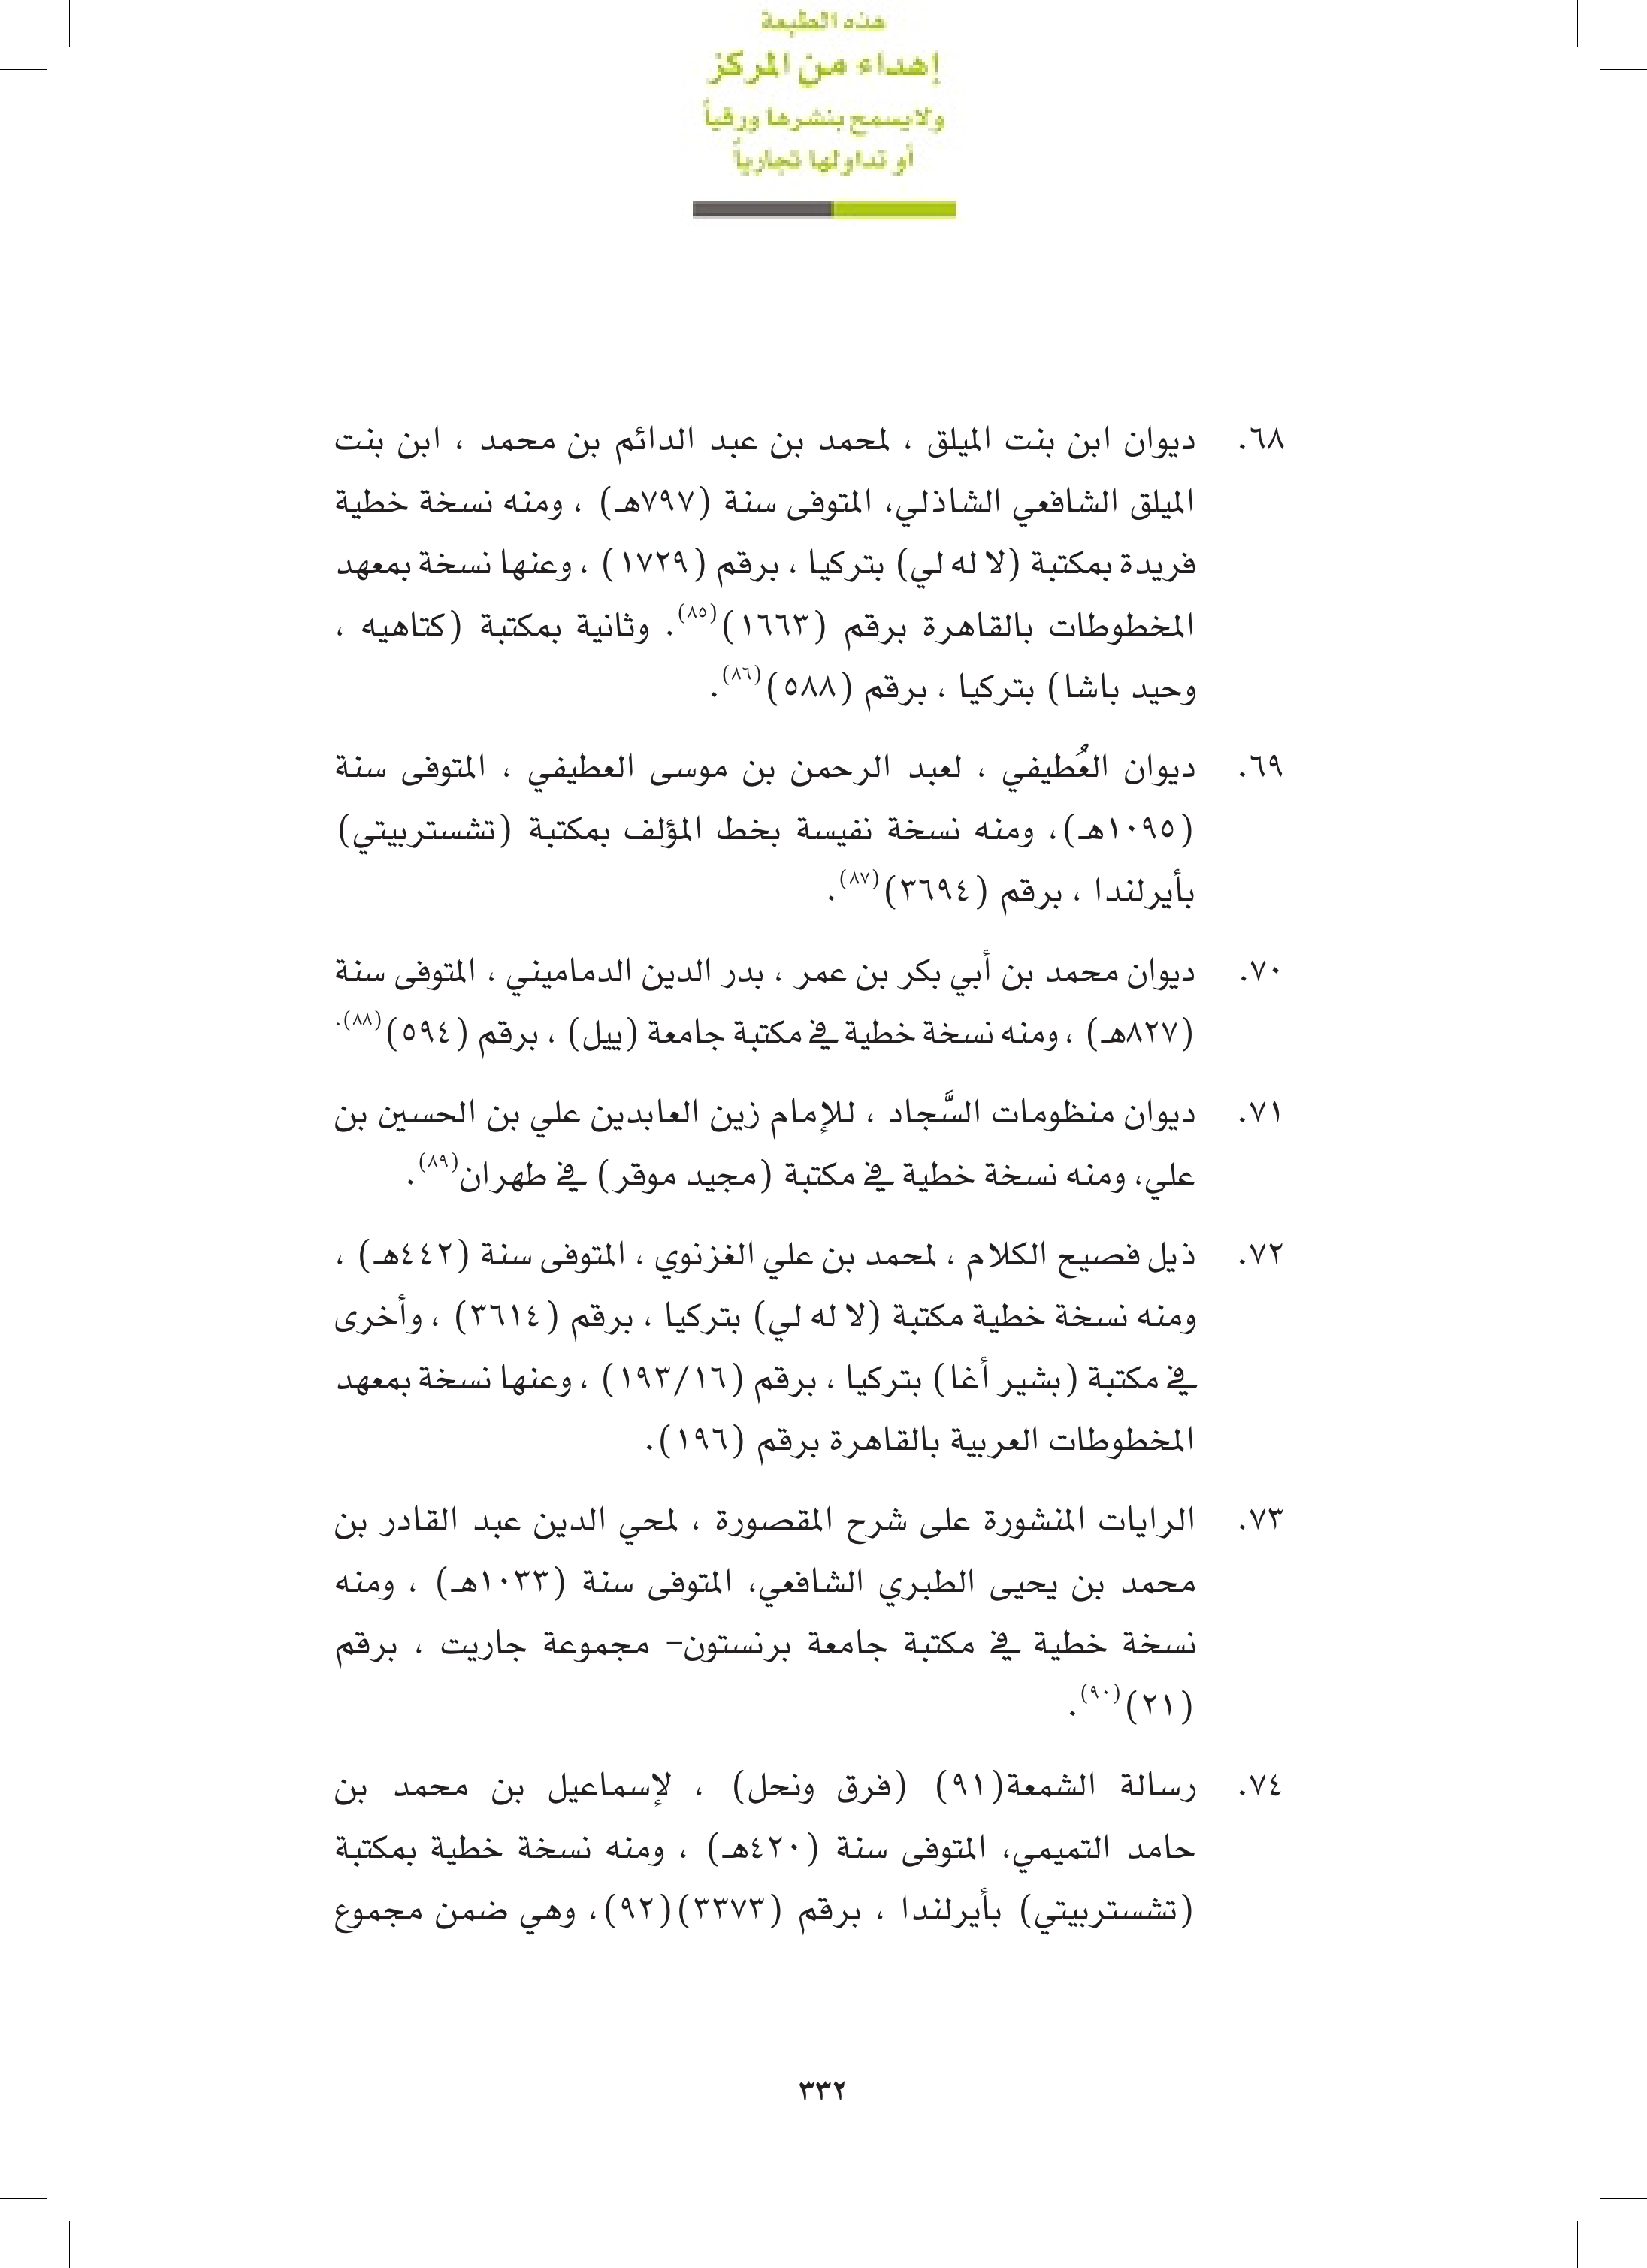 هذه الطبعة
إهداء من المركز
ولا يسمح بنشرها ورقياً
أو تداولها تجارياً
٦٨. ديوان ابن بنت الميلق ، لمحمد بن عبد الدائم بن محمد ، ابن بنت
الميلق الشافعي الشاذلي، المتوفى سنة (٧٩٧هـ) ، ومنه نسخة خطية
فريدة بمكتبة (لا له لي) بتركيا ، برقم (١٧٢٩) ، وعنها نسخة بمعهد
المخطوطات بالقاهرة برقم (١٦٦٣)(٨٥). وثانية بمكتبة (كتاهيه ،
وحيد باشا) بتركيا ، برقم (٥٨٨)(٨٦).
٦٩. ديوان العُطيفي ، لعبد الرحمن بن موسى العطيفي ، المتوفى سنة
(١٠٩٥هـ)، ومنه نسخة نفيسة بخط المؤلف بمكتبة (تشستربيتي)
بأيرلندا ، برقم (٣٦٩٤)(٨٧).
٧٠. ديوان محمد بن أبي بكر بن عمر ، بدر الدين الدماميني ، المتوفى سنة
(٨٢٧هـ) ، ومنه نسخة خطية في مكتبة جامعة (ييل) ، برقم (٥٩٤)(٨٨).
٧١. ديوان منظومات السَّجاد ، للإمام زين العابدين علي بن الحسين بن
علي، ومنه نسخة خطية في مكتبة (مجيد موقر) في طهران(٨٩).
٧٢. ذيل فصيح الكلام ، لمحمد بن علي الغزنوي ، المتوفى سنة (٤٤٢هـ) ،
ومنه نسخة خطية مكتبة (لا له لي) بتركيا ، برقم (٣٦١٤) ، وأخرى
في مكتبة (بشير أغا) بتركيا ، برقم (١٩٣/١٦) ، وعنها نسخة بمعهد
المخطوطات العربية بالقاهرة برقم (١٩٦).
٧٣. الرايات المنشورة على شرح المقصورة ، لمحي الدين عبد القادر بن
محمد بن يحيى الطبري الشافعي، المتوفى سنة (١٠٣٣هـ) ، ومنه
نسخة خطية في مكتبة جامعة برنستون- مجموعة جاريت ، برقم
(٢١)(٩٠).
٧٤. رسالة الشمعة(٩١) (فرق ونحل) ، لإسماعيل بن محمد بن
حامد التميمي، المتوفى سنة (٤٢٠هـ) ، ومنه نسخة خطية بمكتبة
(تشستربيتي) بأيرلندا ، برقم (٣٣٧٣)(٩٢)، وهي ضمن مجموع
٣٣٢